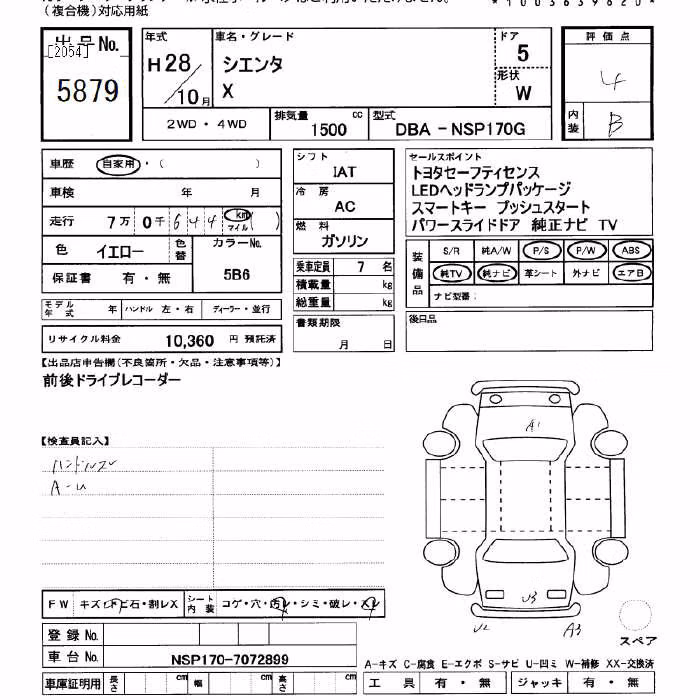 (複合機)対応用紙
*1003639620*
出品No.
[2054]
5879
年式
H28/10月
車名・グレード
シエンタ
X
ドア
5
形状
W
評価点
4
内装
B
2WD・4WD
排気量 1500 cc
型式
DBA－NSP170G
車歴 自家用・( )
車検 年 月
走行 7万0千644 km( ) マイル
色 イエロー
色替
カラーNo.
5B6
保証書 有・無
モデル年式 年 ハンドル 左・右 ディーラー・並行
リサイクル料金 10,360 円 預託済
シフト
IAT
冷房
AC
燃料
ガソリン
乗車定員 7 名
積載量 kg
総重量 kg
書類期限
月 日
セールスポイント
トヨタセーフティセンス
LEDヘッドランプパッケージ
スマートキー プッシュスタート
パワースライドドア 純正ナビ TV
装備品
S/R 純A/W P/S P/W ABS
純TV 純ナビ 革シート 外ナビ エアB
ナビ型番:
後日品
【出品店申告欄(不良箇所・欠品・注意事項等)】
前後ドライブレコーダー
【検査員記入】
ハンドルスレ
A-U
A1
U3
U2
A3
スペア
FW キズ・トビ石・割レX
シート内装 コゲ・穴・汚レ・シミ・破レ・スレ
登録No.
車台No. NSP170-7072899
車庫証明用 長さ cm 幅 cm 高さ cm
A-キズ C-腐食 E-エクボ S-サビ U-凹ミ W-補修 XX-交換済
工具 有・無 ジャッキ 有・無